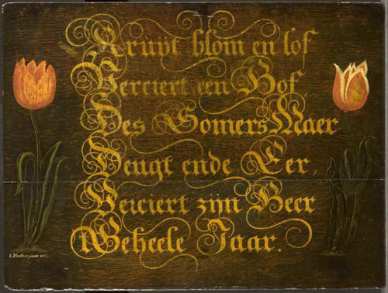 Kruyt blom en lof
Verciert een Hof
Des Somers Maer
Deugt ende Eer,
Verciert zyn Heer
Geheele Jaar.